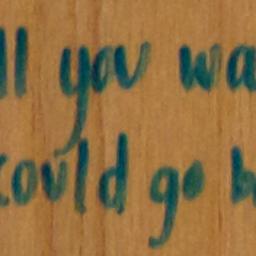 ll you wa
could go h